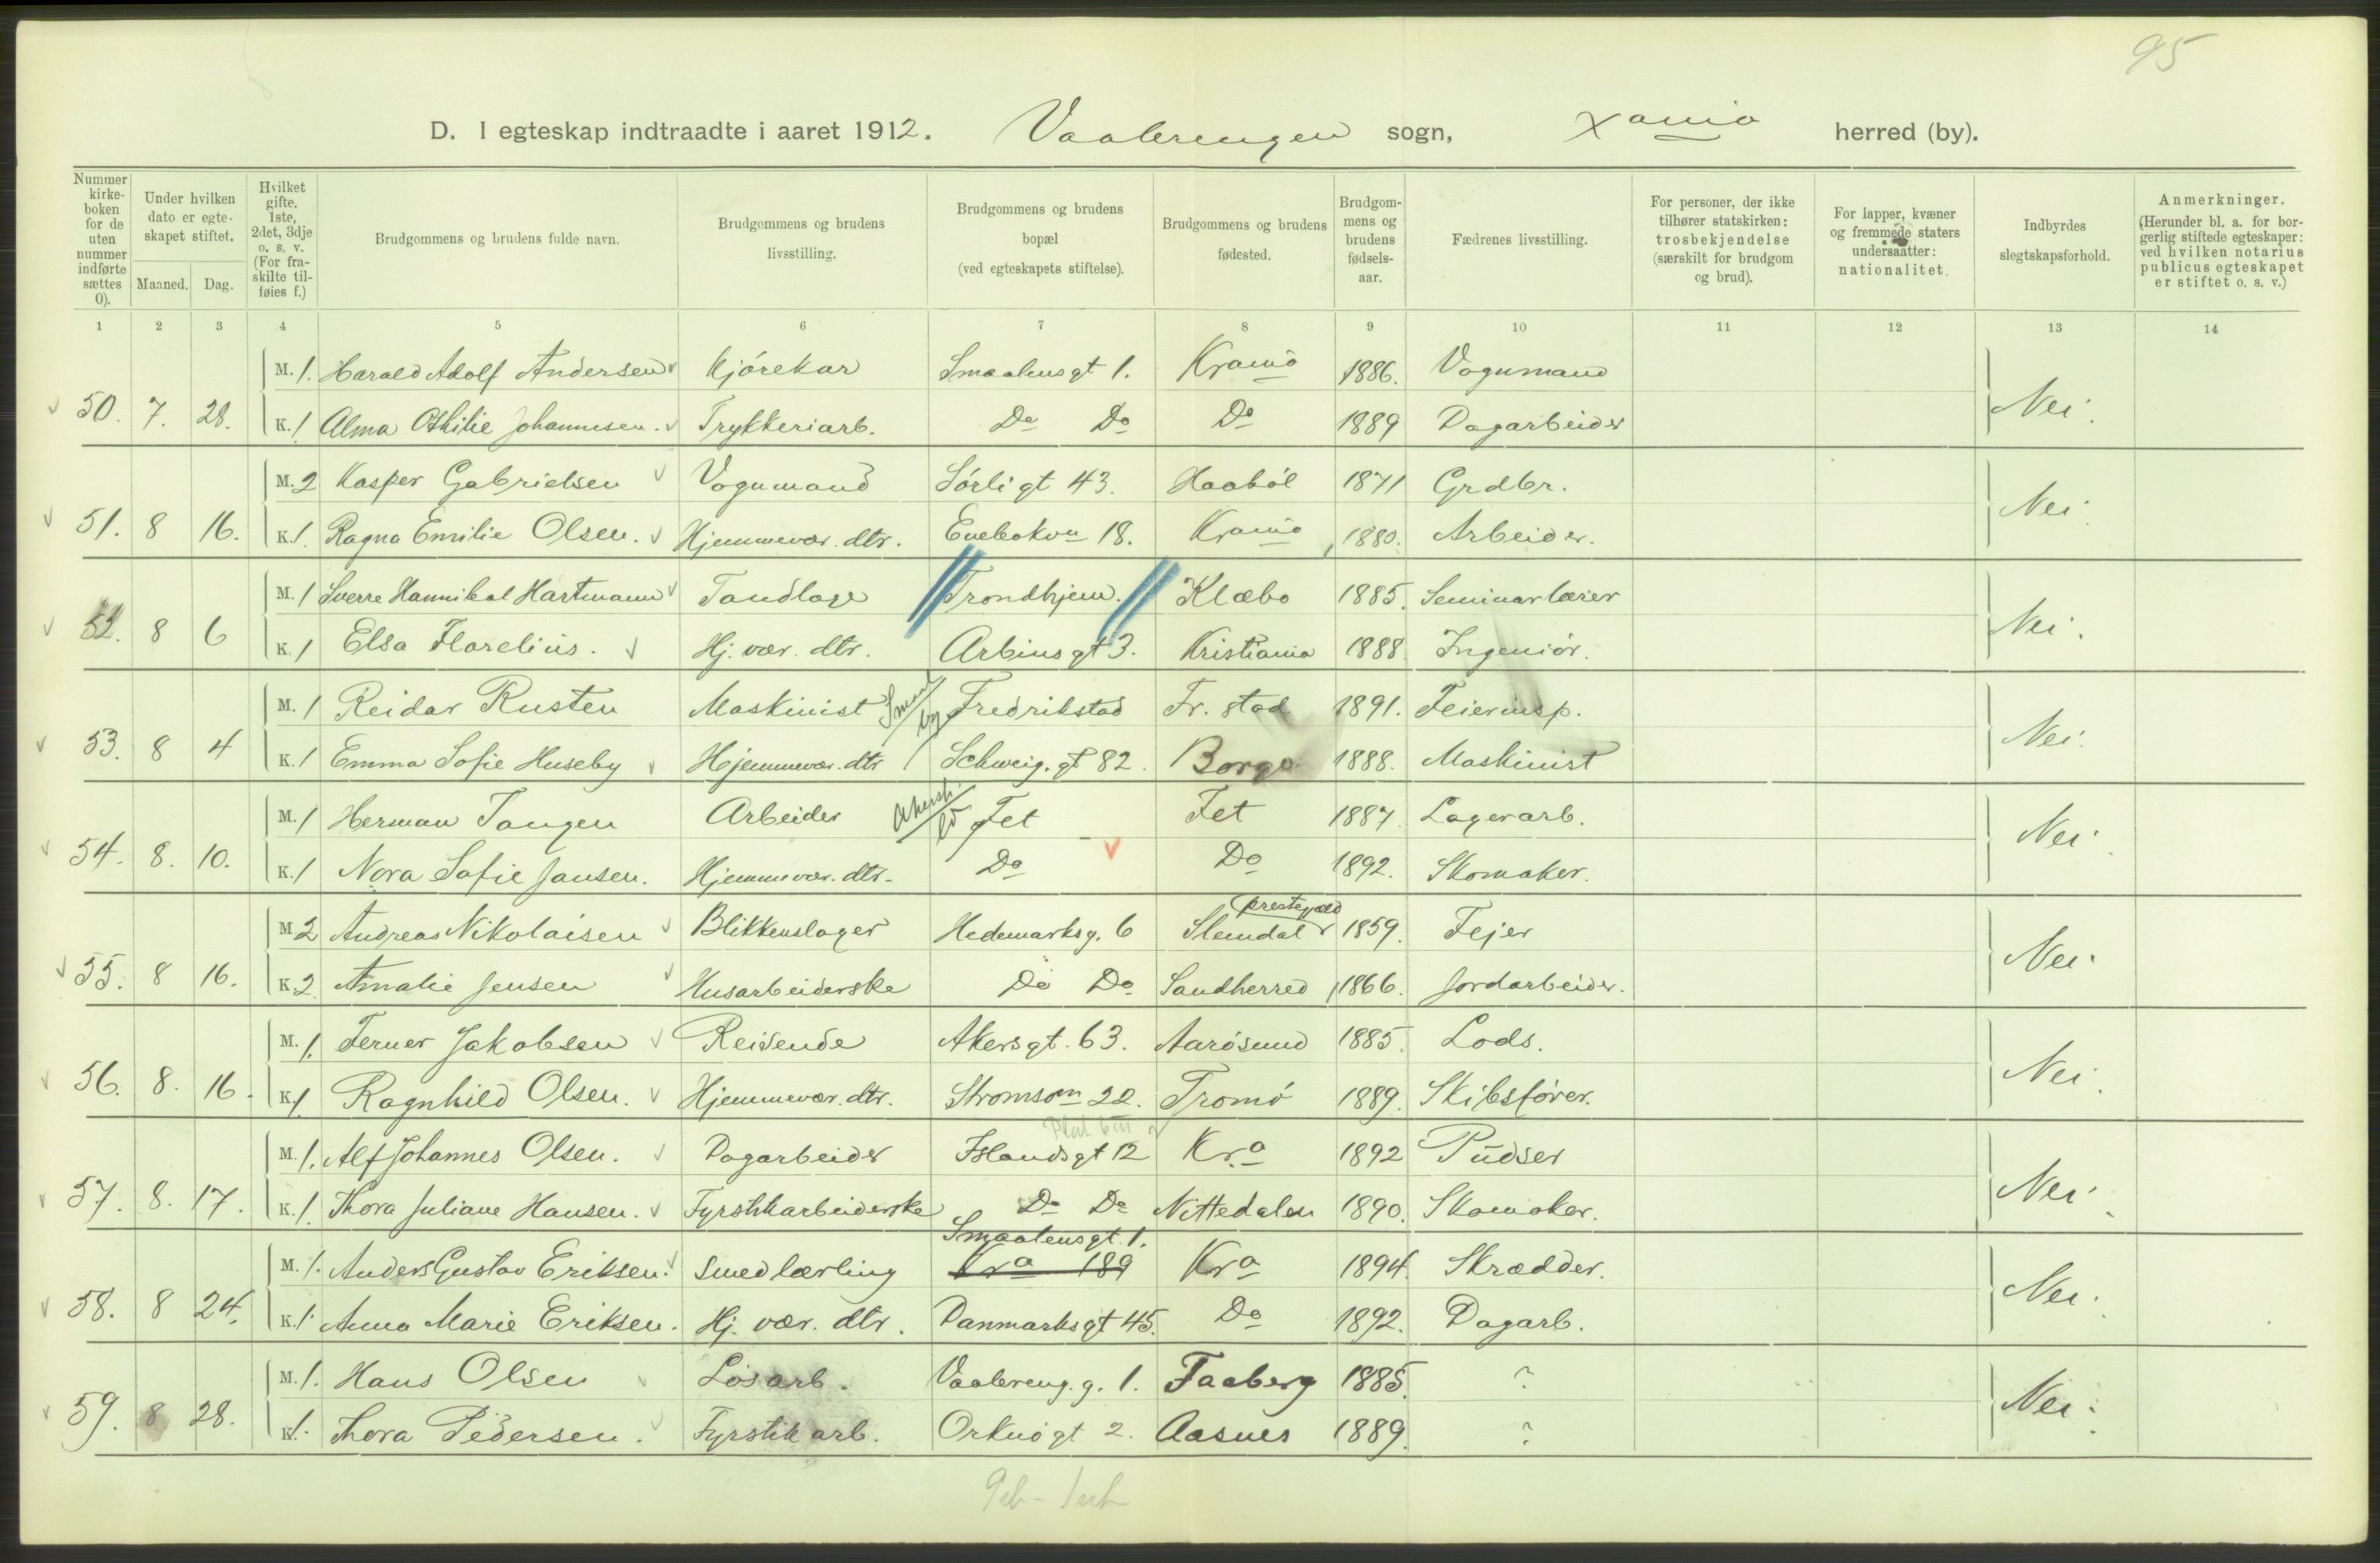 95
D. I egteskap indtraadte i aaret 1912. Vaalerengen sogn, Xania herred (by).
Nummer kirke-boken for de uten nummer indførte sættes 0). Under hvilken dato er egte-skapet stiftet. Maaned. Dag. Hvilket gifte. 1ste, 2det, 3dje o. s. v. (For fra-skilte til-føies f.) Brudgommens og brudens fulde navn. Brudgommens og brudens livsstilling. Brudgommens og brudens bopæl (ved egteskapets stiftelse). Brudgommens og brudens fødested. Brudgom-mens og brudens fødsels-aar. Fædrenes livsstilling. For personer, der ikke tilhører statskirken: trosbekjendelse (særskilt for brudgom og brud). For lapper, kvæner og fremmede staters undersaatter: nationalitet. Indbyrdes slegtskapsforhold. Anmerkninger. (Herunder bl. a. for bor-gerlig stiftede egteskaper: ved hvilken notarius publicus egteskapet er stiftet o. s. v.)
1 2 3 4 5 6 7 8 9 10 11 12 13 14
M. 1. Harald Adolf Andersen Kjörekar Smaalensgt 1. Krania 1886. Vognmand
50. 7. 28. K. 1 Alma Othilie Johannesen. Trykkeriarb. Do Do Do 1889 Dagarbeider Nei.
M. 2 Kasper Gabrielsen Vognmand Sörligt 43. Haaböl 1871 Grdbr.
51. 8 16. K. 1. Ragna Emilie Olsen. Hjemmevær. dtr. Enebakvn 18. Krania 1880. Arbeider. Nei.
M. 1 Sverre Hannibal Hartmann Tandlæge Trondhjem. Klæbo 1885. Seminarlærer
52. 8 6 K. 1 Elsa Florelius. Hj. vær. dtr. Arbinsgt 3. Kristiania 1888. Ingeniör. Nei.
M. 1 Reidar Rusten Maskinist Smaal by Fredrikstad Fr. stad 1891. Feierinsp.
53. 8 4 K. 1 Emma Sofie Huseby Hjemmevær. dtr Schweig. gt 82. Borge 1888. Maskinist Nei.
M. 1 Herman Tangen Arbeider Akersh. ld Fet Fet 1887. Lagerarb.
54. 8. 10. K. 1 Nora Sofie Jansen. Hjemmevær. dtr. Do Do 1892. Skomaker. Nei.
M. 2 Andreas Nikolaisen Blikkenslager Hedemarksg. 6 Slemdal prestegjeld 1859. Fejer
55. 8 16. K. 2 Amalie Jensen Husarbeiderske Do Do Sandherred 1866. Jordarbeider. Nei.
M. 1. Ferner Jakobsen Reisende Akersgt. 63. Aarösund 1885. Lods.
56. 8. 16. K. 1 Ragnhild Olsen. Hjemmevær. dtr. Stromsvn 22. Tromö 1889. Skibsförer. Nei.
M. 1. Alf Johannes Olsen. Dagarbeider Islandsgt 12 Kra 1892 Pudser
57. 8. 17. K. 1. Thora Juliane Hansen. Fyrstikkarbeiderske Do Do Nittedalen 1890. Skomaker. Nei.
Smaalensgt. 1.
M. 1. Anders Gustav Eriksen. Smedlærling Kra 189 Kra 1894. Skrædder.
58. 8 24. K. 1. Anna Marie Eriksen. Hj. vær. dtr. Danmarksgt 45. Do 1892. Dagarb. Nei.
M. 1. Hans Olsen Løsarb. Vaalereng. g. 1. Faaberg 1885. ?
59. 8 28. K. 1. Thora Pedersen. Fyrstikarb. Orknögt 2. Aasnes 1889. ? Nei.